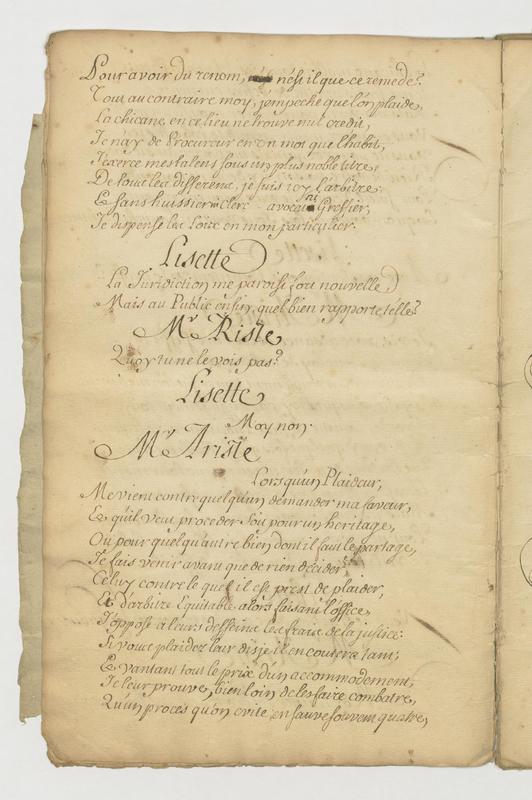 Pour avoir du renom, n'est il que ce remede?
Tout au contraire moy, j'empeche que l'on plaide,
La chicane, en ce lieu ne trouve nul credit,
Je n'ay de Procureur en un mot que l'habit,
J'exerce mes talens sous un plus noble titre,
De tous les differens, je suis icy l'arbitre,
Et sans huissier clerc avocat ni Greffier,
Je dispense les Loix en mon particulier.
Lisette
La Juridiction me paroist fort nouvelle
Mais au Public enfin, quel bien rapporte telle?
Mr. Riste,
Quoy tu ne le vois pas?
Lisette
Moy non.
Mr. Ariste
Lorsqu'un Plaideur,
Me vient contre quelqu'un demander ma faveur,
Et qu'il veut proceder soit pour un heritage,
Ou pour quelqu'autre bien dont il faut le partage,
Je fais venir avant que de rien decider
Celuy contre lequel il est prest de plaider,
Et d'arbitre Equitable alors faisant l'office,
J'oppose à leurs desseins les frais de la justice:
Si vous plaidez leur dis je il en coutera tant;
Et vantant tout le prix d'un accommodement,
Je leur prouve, bien loin de les faire combatre,
Qu'un proces qu'on evite en sauve souvent quatre,